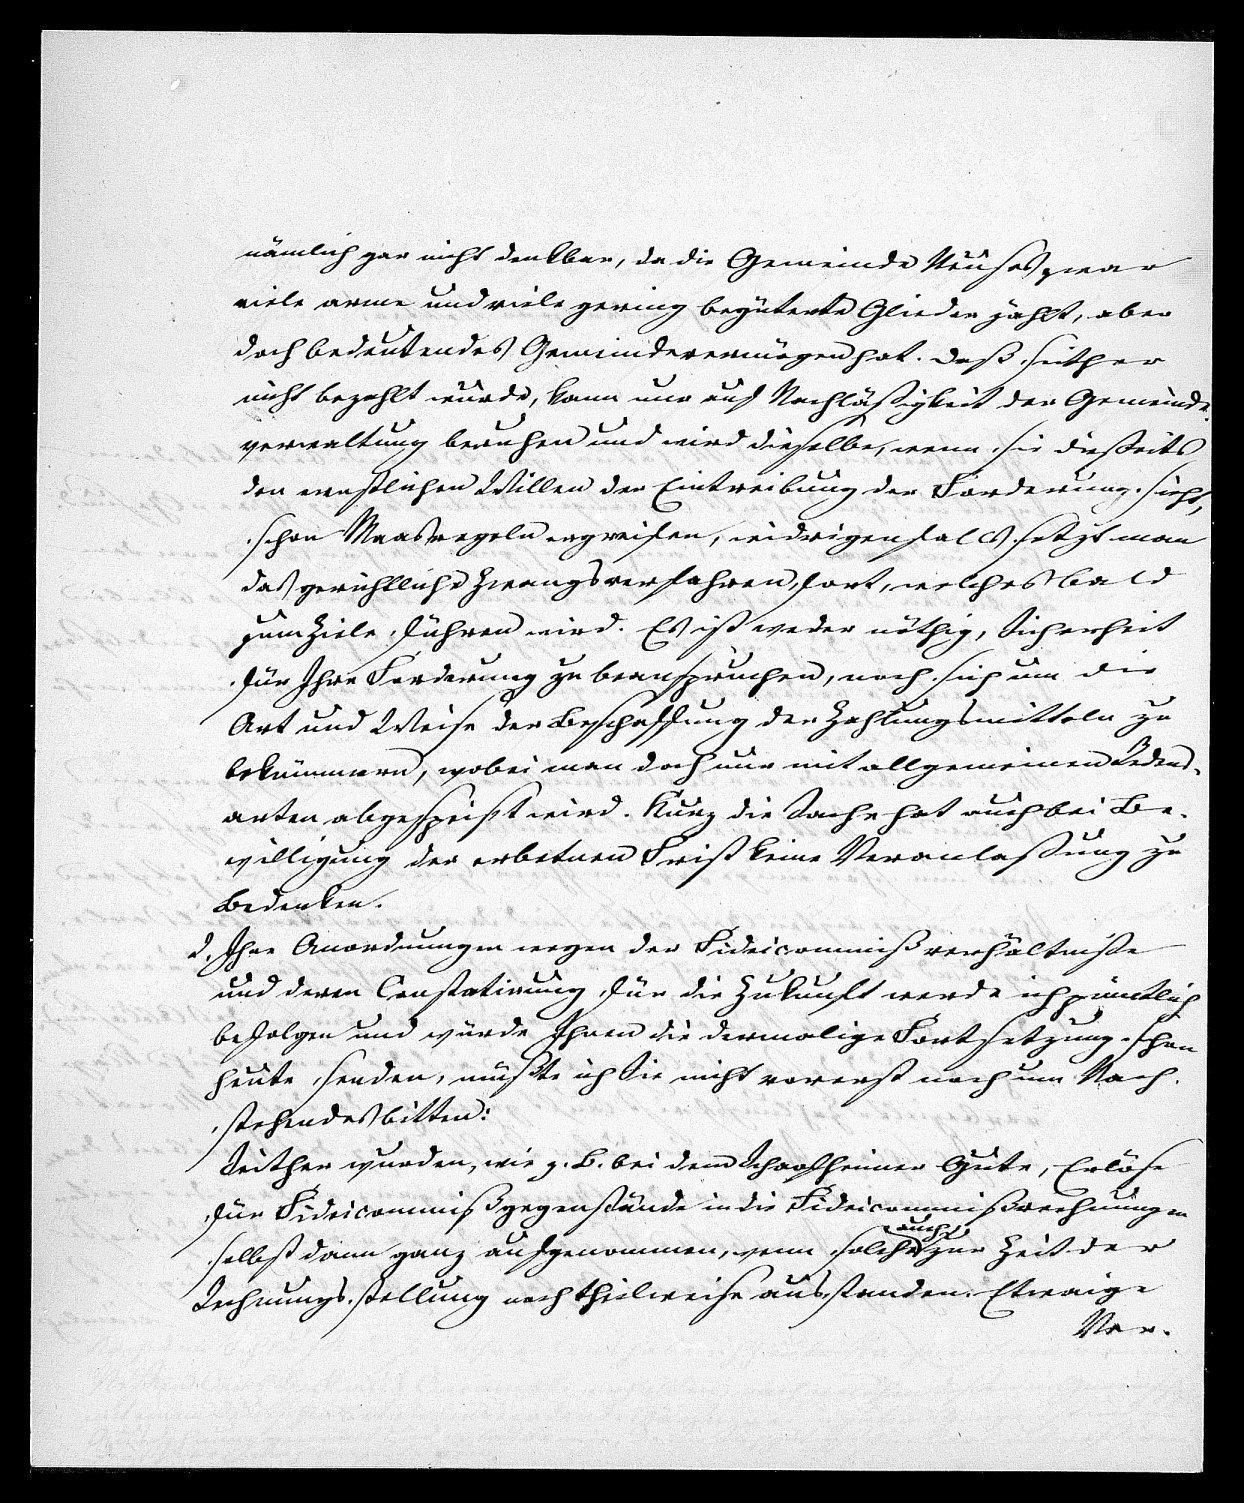 nämlich gar nicht denkbar, da die Gemeinde Neuses zwar
viele arme und viele gering begüterte Glieder zählt, aber
doch bedeutendes Gemeindevermögen hat. Daß seither
nicht bezahlt wurde, kann nur auf Nachläßigkeit der Gemeinde-
verwaltung beruhen und wird dieselbe, wenn sie dießeits
den ernstlichen Willen der Eintreibung der Forderung sieht,
schon Maasregeln ergreifen, widrigenfalls setzt man
das gerichtliche Zwangsverfahren fort, welches bald
zum Ziele führen wird. Es ist weder nöthig, Sicherheit
für Ihre Forderung zu beanspruchen, noch sich um die
Art und Weise der Beschaffung der Zahlungsmitteln zu
bekümmern, wobei man doch nur mit allgemeinen Redens-
arten abgespeist wird. Kurz die Sache hat auch bei Be-
willigung der erbetnen Frist keine Veranlaßung zu
Bedenken.
d. Ihre Anordnungen wegen der Fideicommißverhältniße
und deren Constatirung für die Zukunft werde ich pünktlich
befolgen und würde Ihnen die dermalige Fortsetzung schon
heute senden, müßte ich Sie nicht vorerst noch um Nach-
stehendes bitten:
Seither wurden, wie z. B. bei dem Schaafheimer Gute, Erlöse
für Fideicommißgegenstände in die Fideicommißrechnungen
selbst dann ganz aufgenommen, wenn solche auch zur Zeit der
Rechnungsstellung noch theilweise ausstanden. Etwaige
Ver-